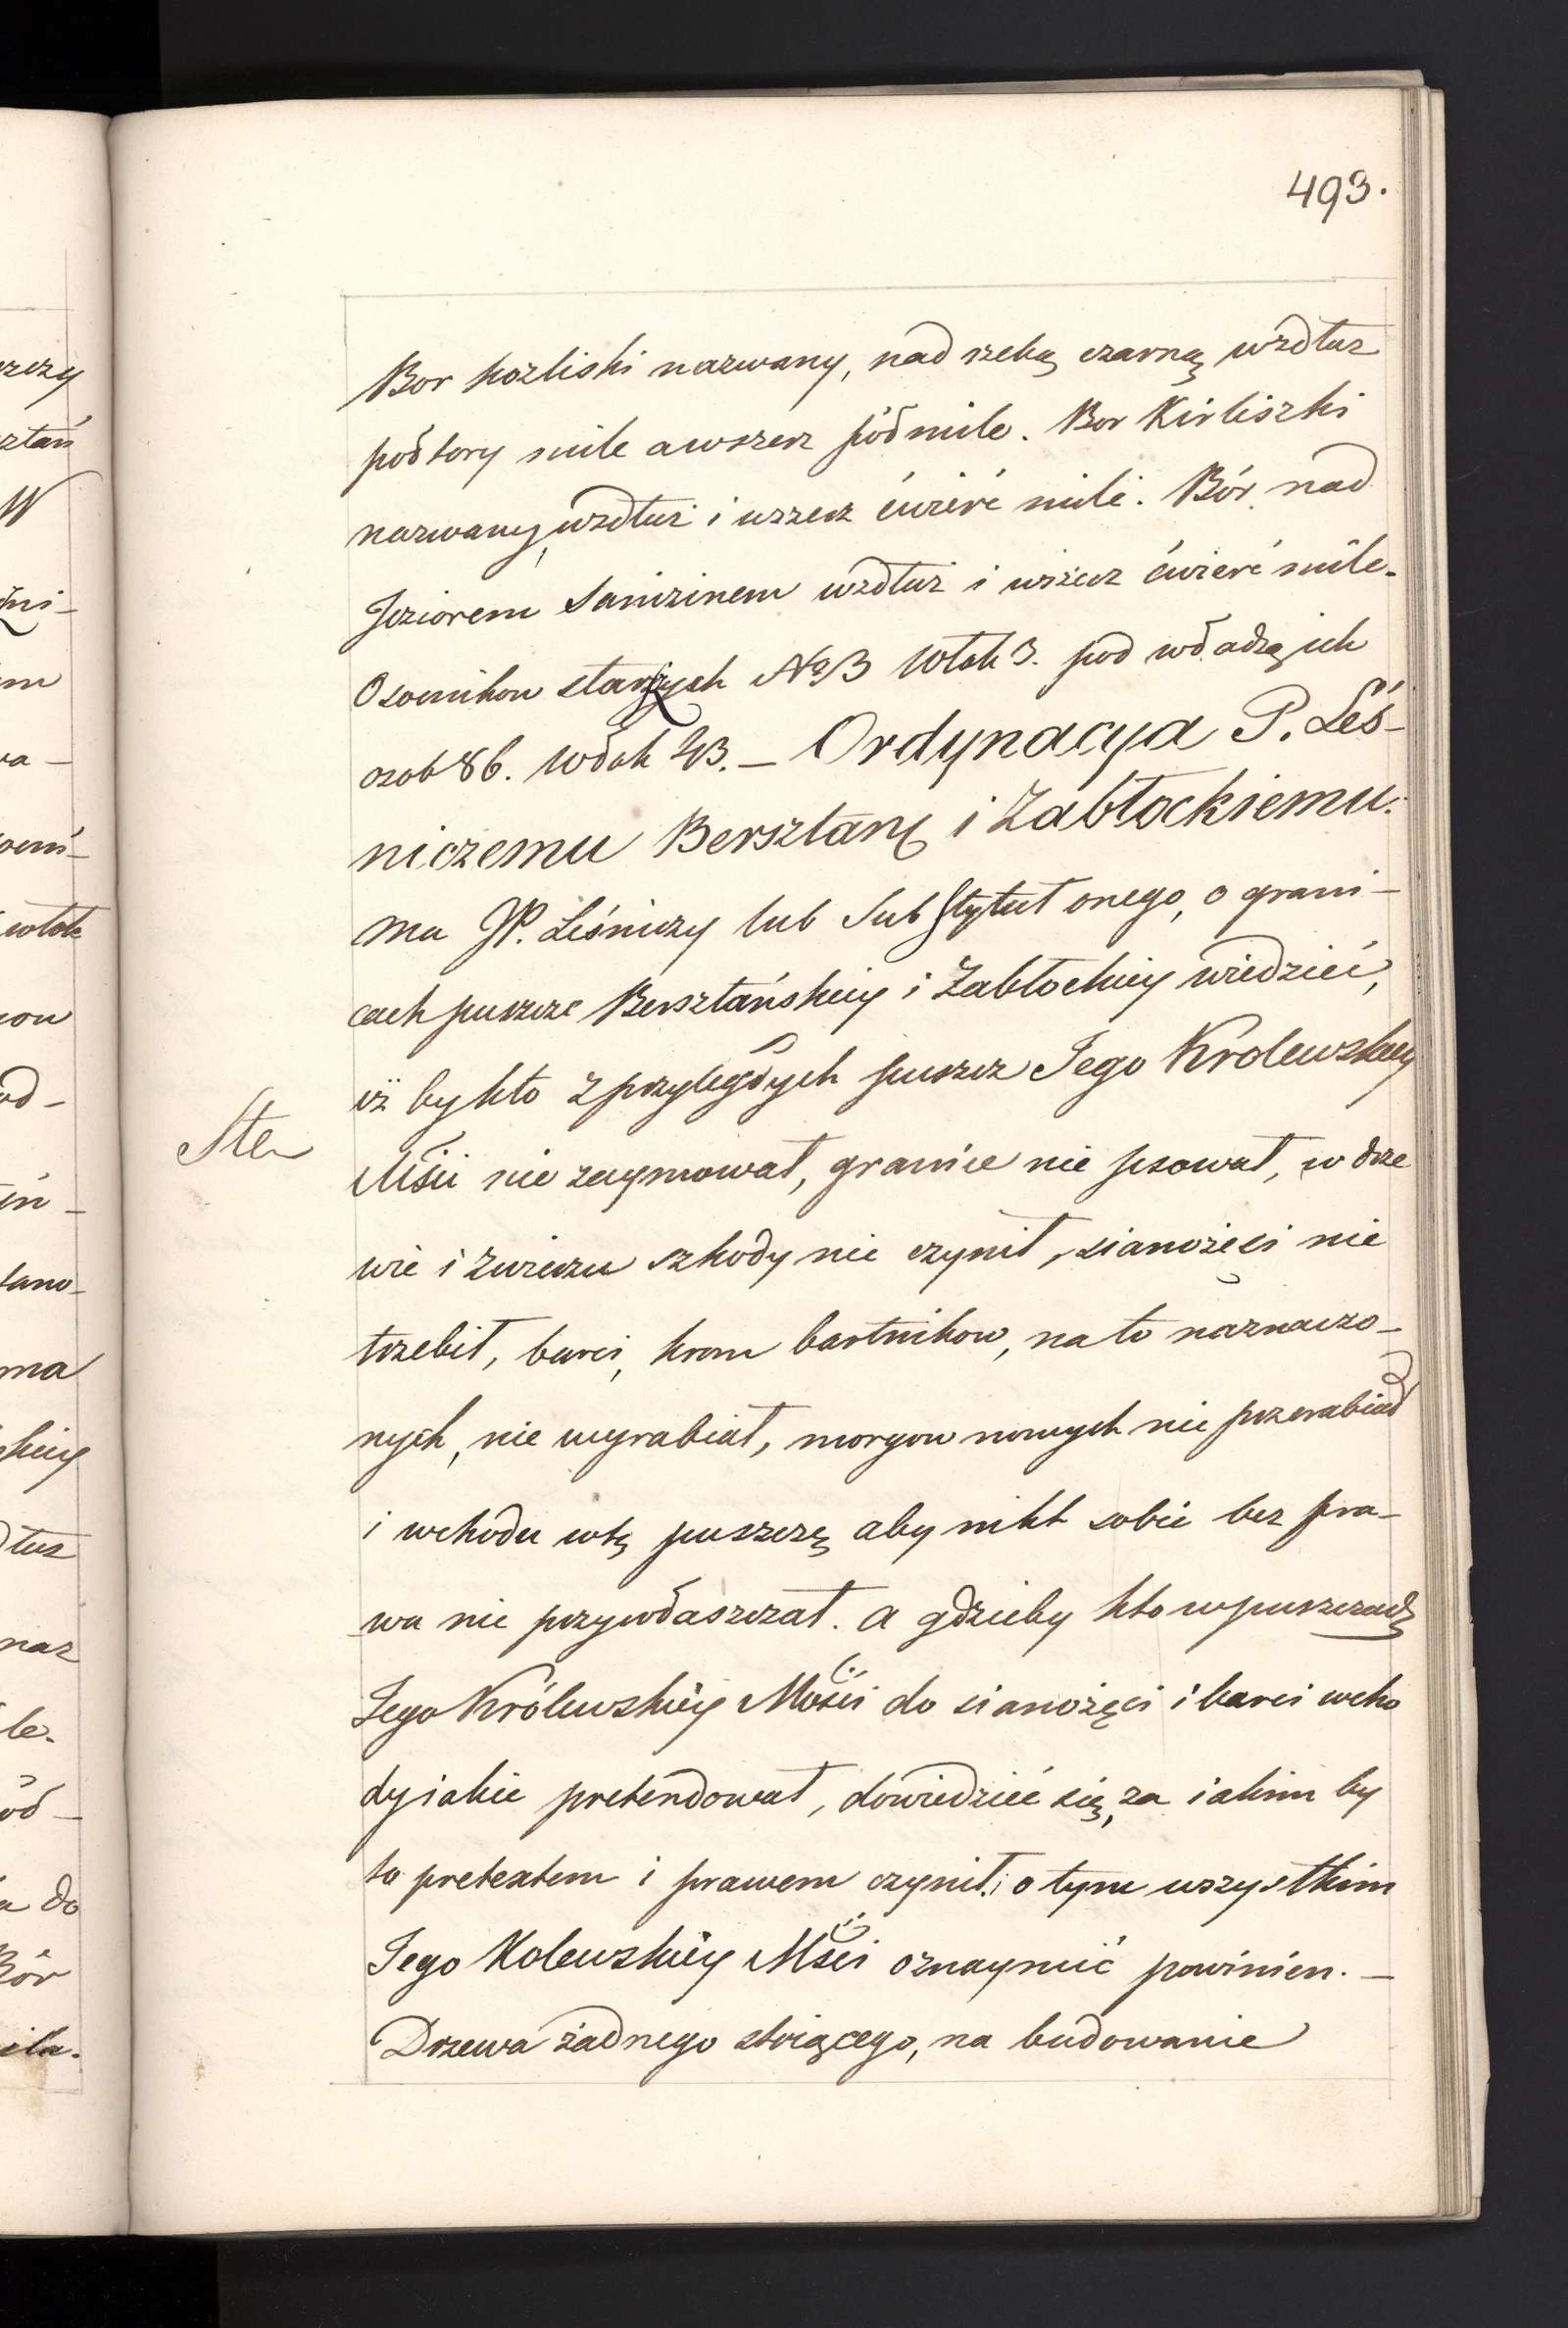 493.
Bor kozliski nazwany, nad rzeką czarną wzdłuz
połtory mile a wszerz półmile. Bor Kirliszki
nazwany, wzdłuż i wszerz ćwierć mili. Bór nad
Jeziorem Sanizinem wzdłuż i wszerz ćwierć mile.
Osocznikow starszych No 3 włok 3. pod władzą ich
osob 86. włok 43. – Ordynacya P. Leś-
niczemu Bersztanſ i Zabłockiemu.
Ma JP. Leśniczy lub Substytut onego, o grani-
cach puszcz Bersztańskiey i Zabłockiey wiedzieć,
iż by kto z przyległych puszcz Jego Krolewskiey
Mści nie zaymował, granice nie psował, w drze
wie i zwierzu szkody nie czynił, sianożęci nie
trzebił, barci, krom bartnikow, na to naznaczo-
nych, nie wyrabiał, morgow nowych nie przerabiał
i wchodu wtę puszczę aby nikt sobie bez pra-
wa nie przywłaszczał. a gdzieby kto wpuszczach
Jego Królewskiéy Mości do sianożęci i barci wcho
dy iakie pretendował, dowiedzieć się, za iakim by
to pretextem i prawem czynił; o tym wszystkim
Jego Kolewskiéy Mści oznaymić powinien. –
Drzewa żadnego stoiącego, na budowanie
Ste